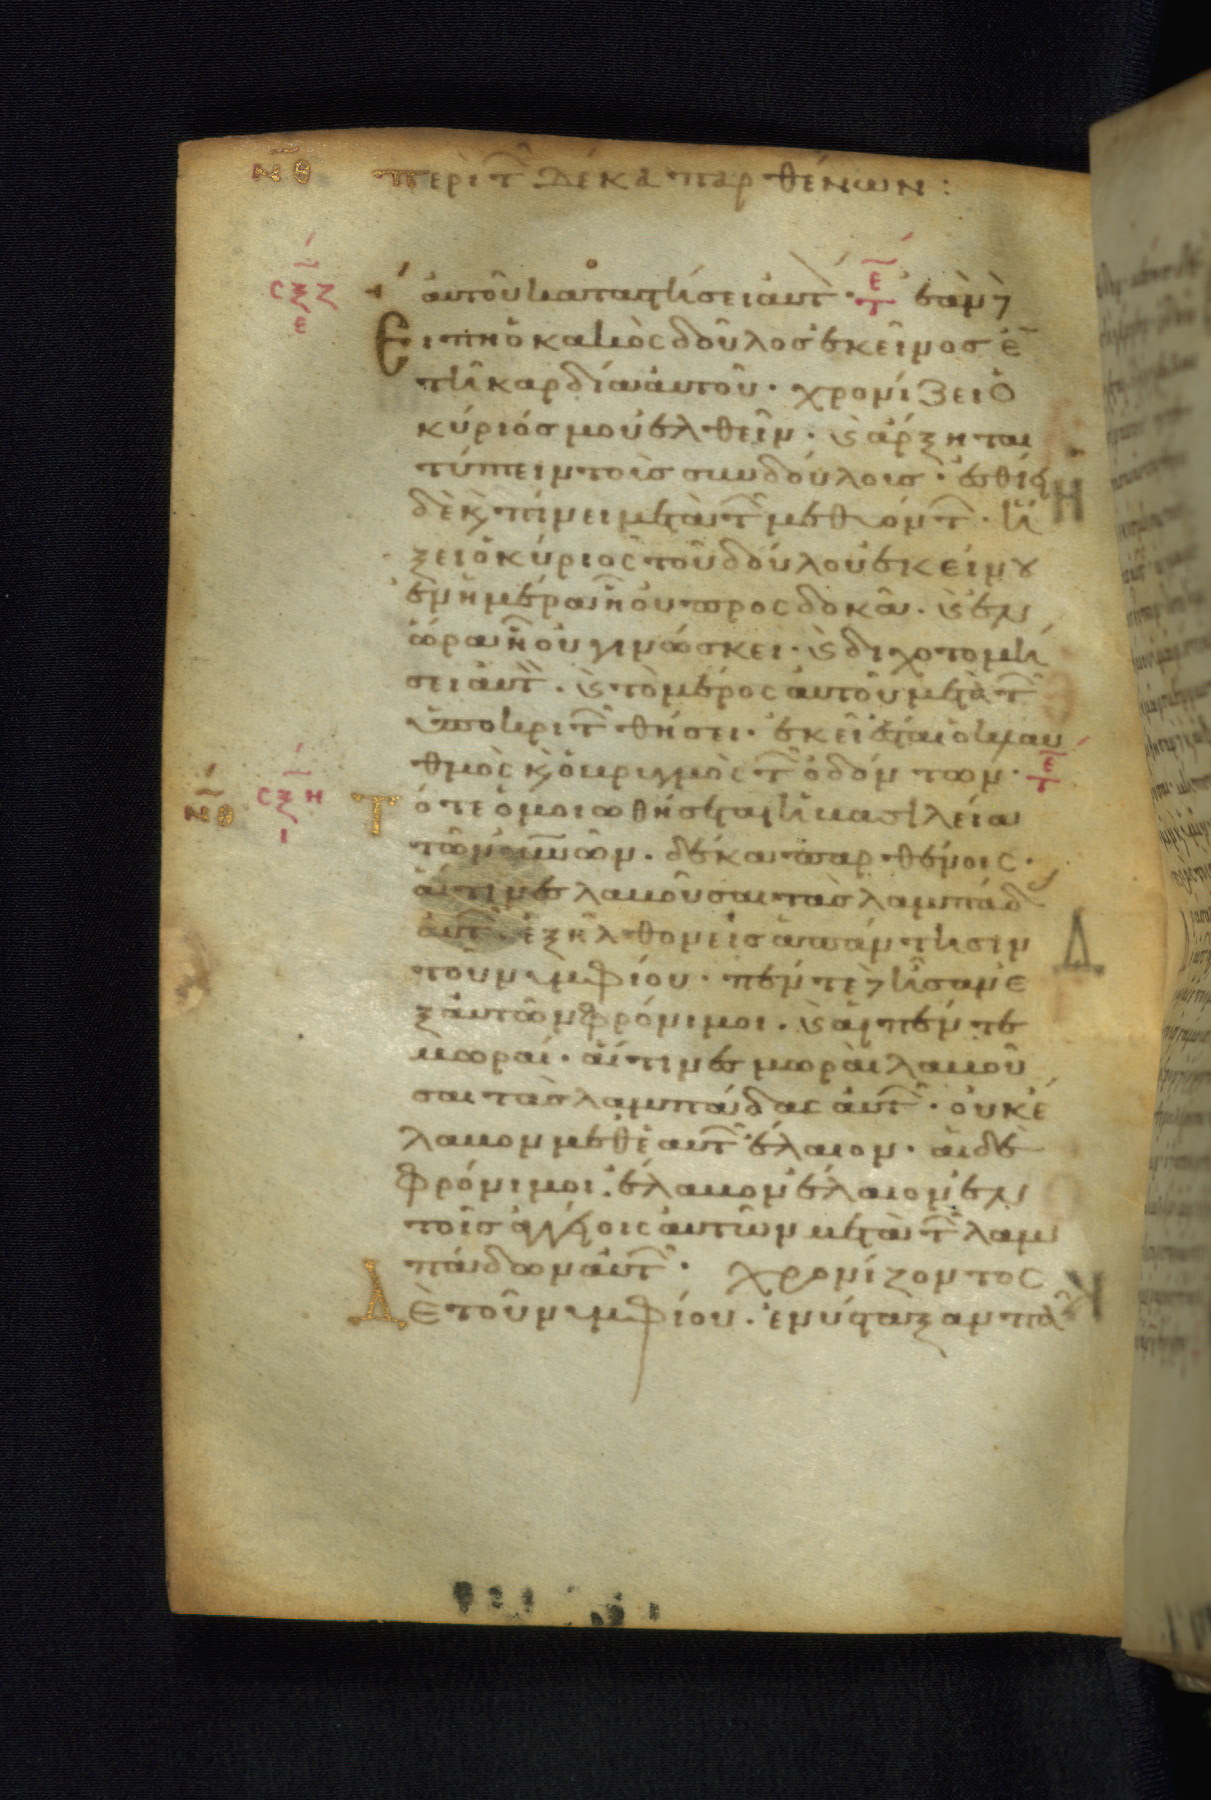 ΝΘ περὶ τ̑ δέκα παρθένων:
σξζ
ε
αὐτοῦ καταστήσει αὐτ· ε̄τ ἐὰν
Εἴπη ὁ κακὸς δοῦλος ἐκεῖνος ἐ
τῆ καρδία αὐτοῦ· χρονίζει ὁ
κύριός μου ἐλθεῖν· ϗ ἄρξηται
τύπτειν τοὺς συνδούλους· ἐσθίη
δὲ ϗ πίνει μετὰ τ̑ μεθυόντ· ἥ
ξει ὁ κύριος τοῦ δούλου ἐκείνου
ἐν ἡμέρα ἧ οὐ προςδοκᾶ· ϗ ἐν
ὥρα ἧ οὐ γινώσκει· ϗ διχοτομή
σει αὐτ· ϗ τὸ μέρος αὐτοῦ μετὰ τ̑
ὑποκριτ̑ θήσει· ἐκεῖ ἔσται ὁ κλαυ
θμὸς ϗ ὁ βρυγμὸς τ̑ ὀδόντων· ε̄τ
ΝΘ σξη
ι
Τότε ὁμοιωθήσεται ἡ βασιλεία
τῶν οὐν̅ῶν· δέκα παρθένοις·
αἵτινες λαβοῦσαι τὰς λαμπάδ
αὐτ̑· ἐξῆλθον εἰς ἀπάντησιν
τοῦ νυμφίου· πέντε ἦσαν ἐ
ξ αὐτῶν φρόνιμοι· ϗ αἱ πέντε
μωραί· αἵτινες μωραὶ λαβοῦ
σαι τὰς λαμπάδας αὐτ̑· οὐκ ἔ
λαβον μεθ' ἑαυτ̑ ἔλαιον· αἱ δὲ
φρόνιμοι· ἔλαβον ἔλαιον ἐν
τοῖς ἀγγείοις αὐτῶν μετὰ τ̑ λαμ
πάδων αὐτ̑· χρονίζοντος
Δὲ τοῦ νυμφίου· ἐνύσταξαν πᾶ